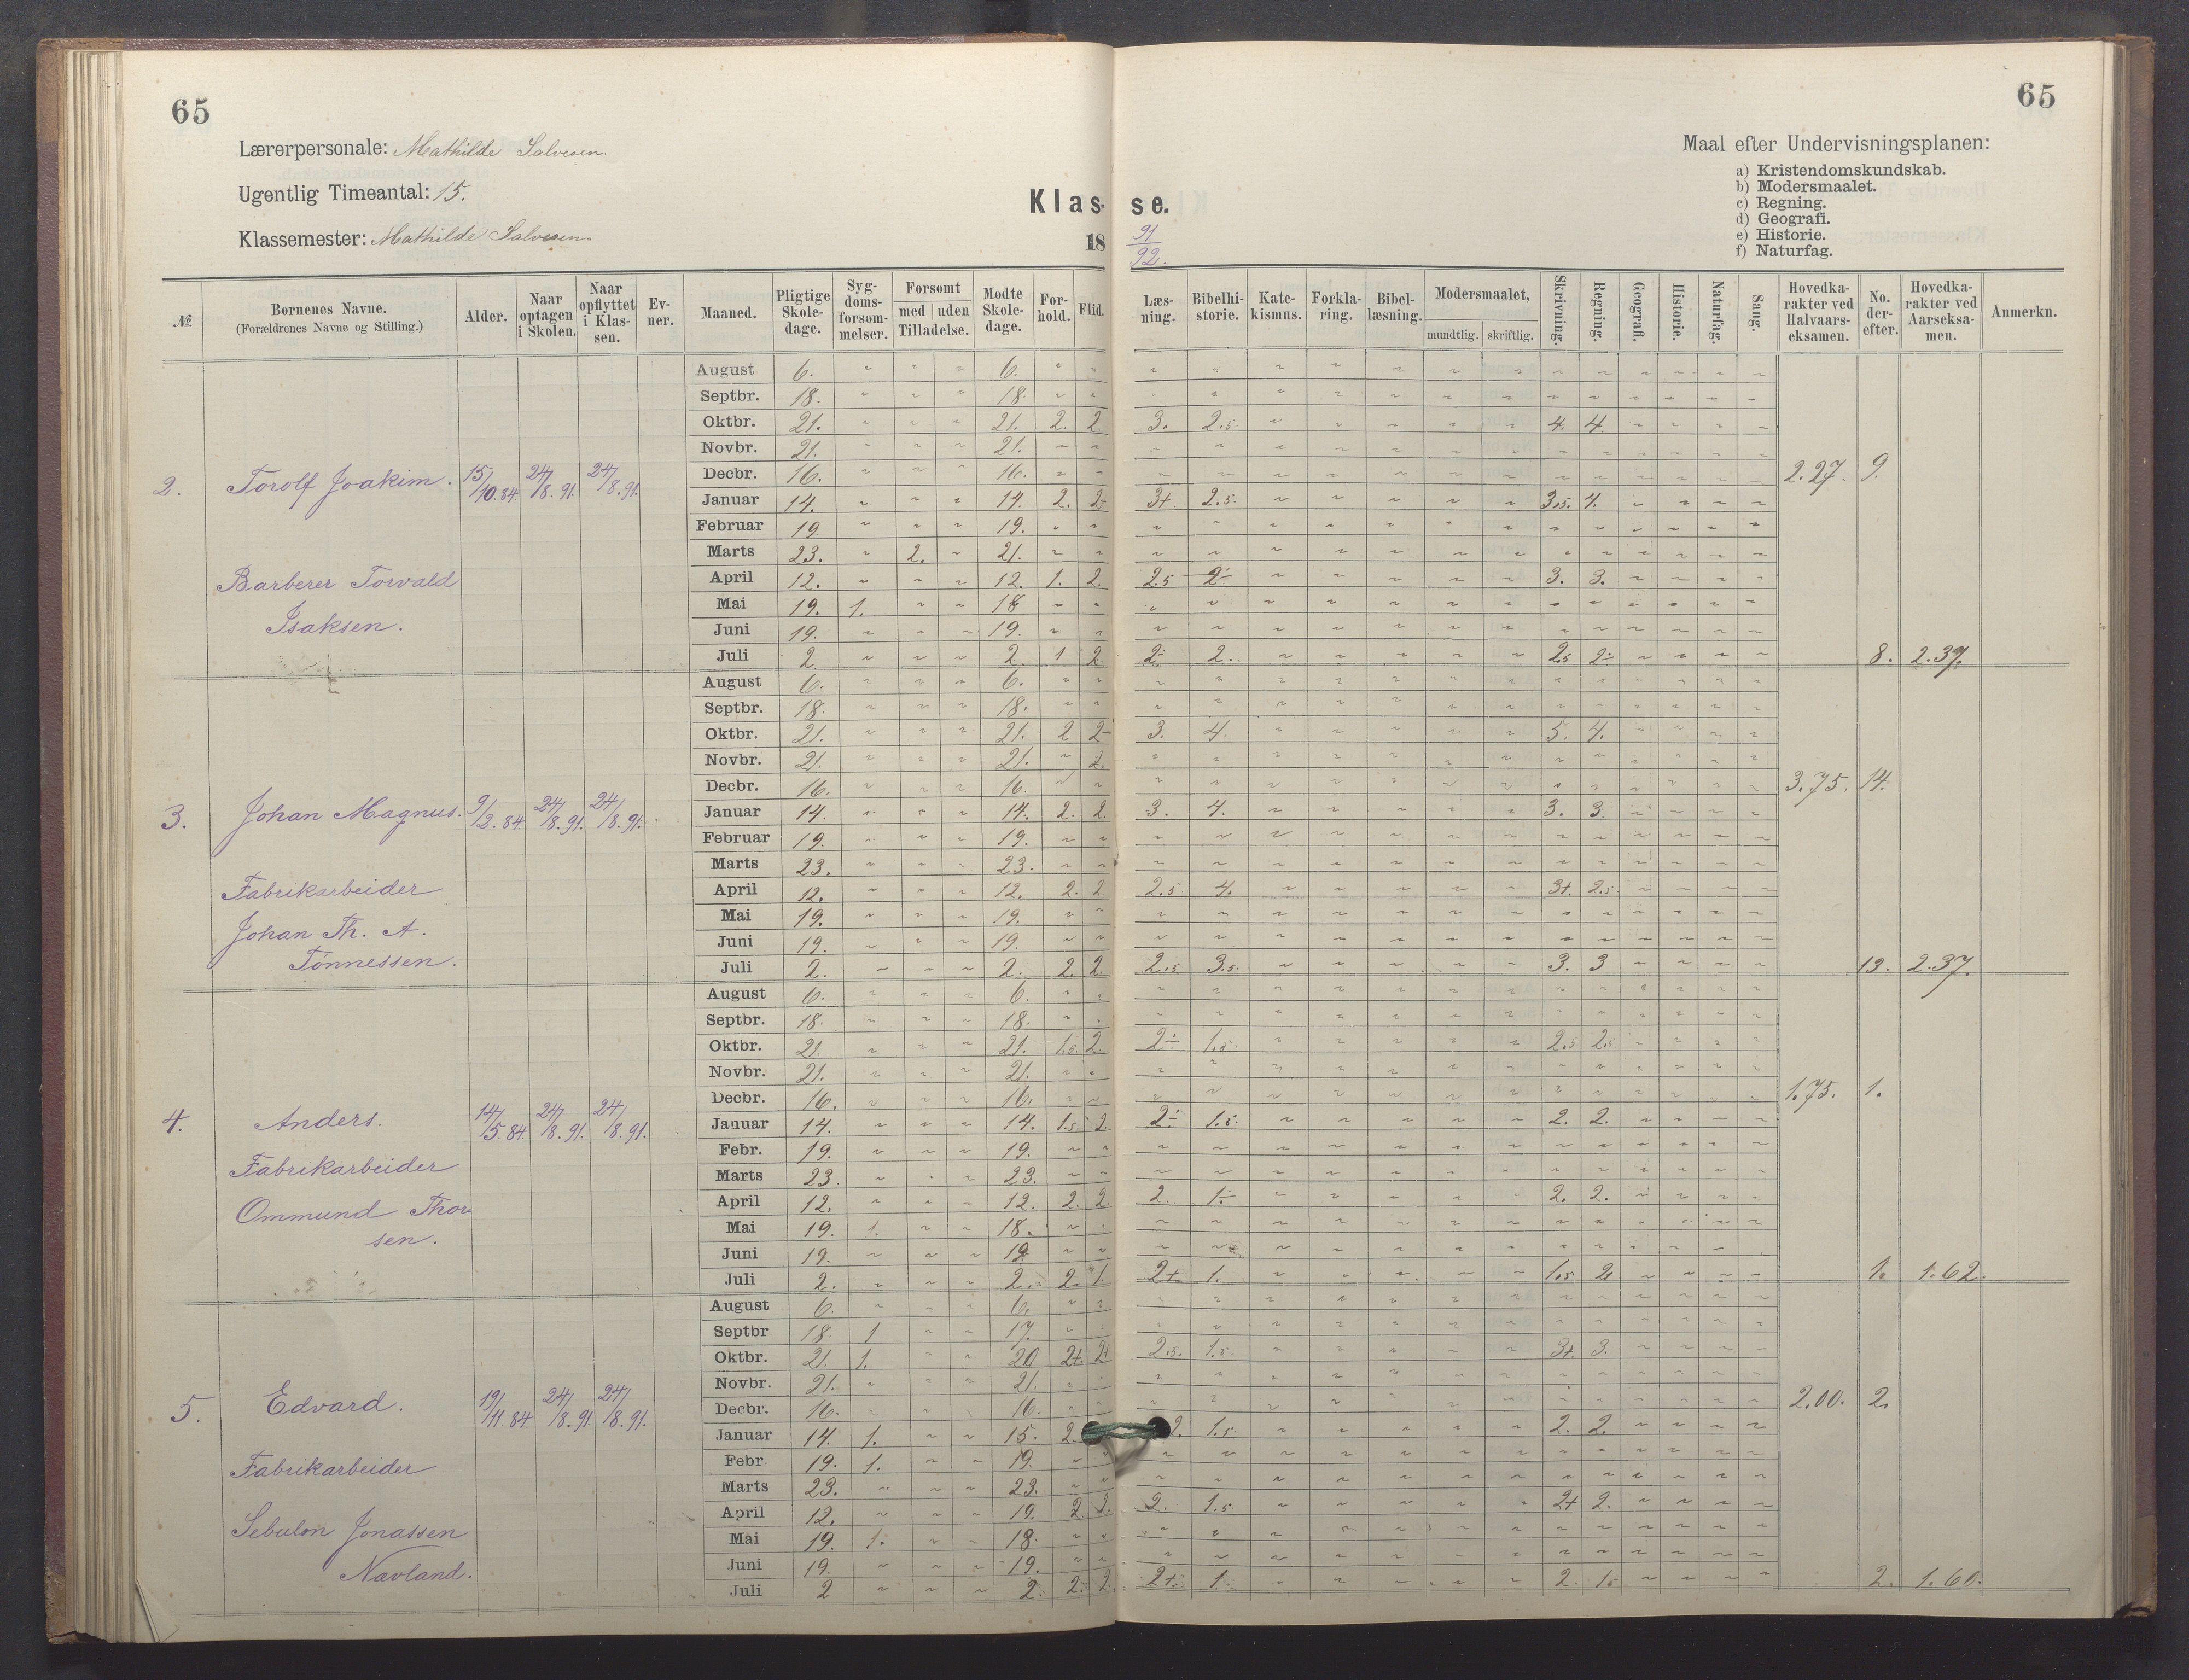 65
65
Lærerpersonale: Mathilde Salvesen.
Ugentlig Timeantal: 15.
Klassemester: Mathilde Salvesen.
Klas- se.
18 91/92.
Maal efter Undervisningsplanen:
a) Kristendomskundskab.
b) Modersmaalet.
c) Regning.
d) Geografi.
e) Historie.
f) Naturfag.
№ Børnenes Navne. (Forældrenes Navne og Stilling.) Alder. Naar optagen i Skolen. Naar opflyttet i Klassen. Evner. Maaned. Pligtige Skoledage. Sygdomsforsømmelser. Forsømt med uden Tilladelse. Mødte Skoledage. Forhold. Flid. Læsning. Bibelhistorie. Katekismus. Forklaring. Bibellæsning. Modersmaalet, mundtlig. skriftlig. Skrivning. Regning. Geografi. Historie. Naturfag. Sang. Hovedkarakter ved Halvaarseksamen. No. derefter. Hovedkarakter ved Aarseksamen. Anmerkn.
2. Torolf Joakim. 15/10.84 24/8.91. 24/8.91. 2.27. 9.
Barberer Torvald
Isaksen.
August 6. 6.
Septbr. 18. 18.
Oktbr. 21. 21. 2. 2. 3. 2.5. 4. 4.
Novbr. 21. 21.
Decbr. 16. 16.
Januar 14. 14. 2. 2- 3+ 2.5. 3.5. 4.
Februar 19. 19.
Marts 23. 2. 21.
April 12. 12. 1. 2. 2.5 2÷ 3. 3.
Mai 19. 1. 18
Juni 19. 19.
Juli 2. 2. 1 2. 2÷ 2. 2.5 2÷ 8. 2.37.
3. Johan Magnus. 9/2.84. 24/8.91. 24/8.91. 3.75. 14.
Fabrikarbeider
Johan Th. A.
Tönnessen.
August 6. 6.
Septbr. 18. 18.
Oktbr. 21. 21. 2 2- 3. 4. 5. 4.
Novbr. 21. 21. 2.
Decbr. 16. 16.
Januar 14. 14. 2. 2. 3. 4. 3. 3.
Februar 19. 19.
Marts 23. 23.
April 12. 12. 2. 2. 2.5 4. 3+. 2.5
Mai 19. 19.
Juni 19. 19.
Juli 2. 2. 2. 2. 2.5. 3.5. 3. 3 13. 2.37.
4. Anders. 14/5.84. 24/8.91. 24/8.91. 1.75. 1.
Fabrikarbeider
Ommund Thor
sen.
August 6. 6.
Septbr. 18. 18.
Oktbr. 21. 21. 1.5. 2. 2÷ 1.5 2.5. 2.5.
Novbr. 21. 21.
Decbr. 16. 16.
Januar 14. 14. 1.5. 2 2÷ 1.5. 2. 2.
Febr. 19. 19.
Marts 23. 23.
April 12. 12. 2. 2 2. 1÷ 2. 2.
Mai 19. 1. 18.
Juni 19. 19
Juli 2. 2. 2. 1. 2+ 1. 1.5 2. 1. 1.62.
5. Edvard. 19/11.84. 24/8.91. 24/8.91. 2.00. 2.
Fabrikarbeider
Sebulon Jonassen
Navland.
August 6. 6.
Septbr 18. 1 17.
Oktbr. 21. 1. 20 2+. 2+ 2.5. 1.5. 3+. 3.
Novbr. 21. 21.
Decbr. 16. 16.
Januar 14. 1. 15. 2. 2. 1.5. 2. 2.
Febr. 19. 1. 19.
Marts 23. 23.
April 12. 19. 2 2. 2. 1.5. 2+ 2.
Mai 19. 1. 18.
Juni 19. 19.
Juli 2 2. 2. 2. 2+. 1. 2. 1.5 2. 1.60.